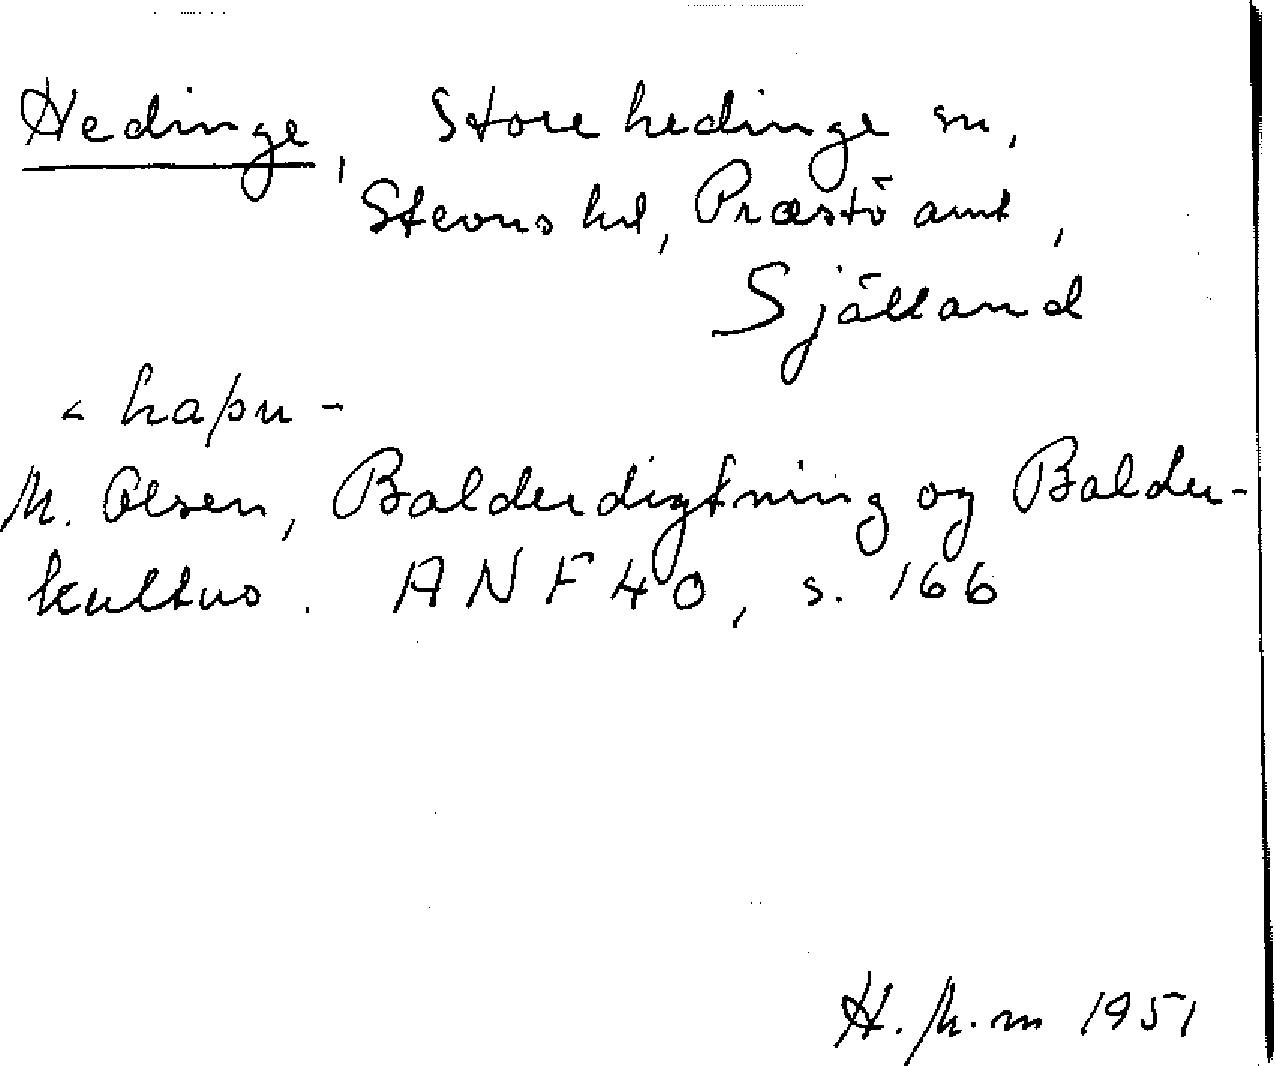 Hedinge, Storehedinge sn,
Stevns hd, Præstö amt,
Själland
< haþu-
M. Olsen, Balderdigtning og Balder-
kultus. ANF 40, s. 166
H. M.m 1951